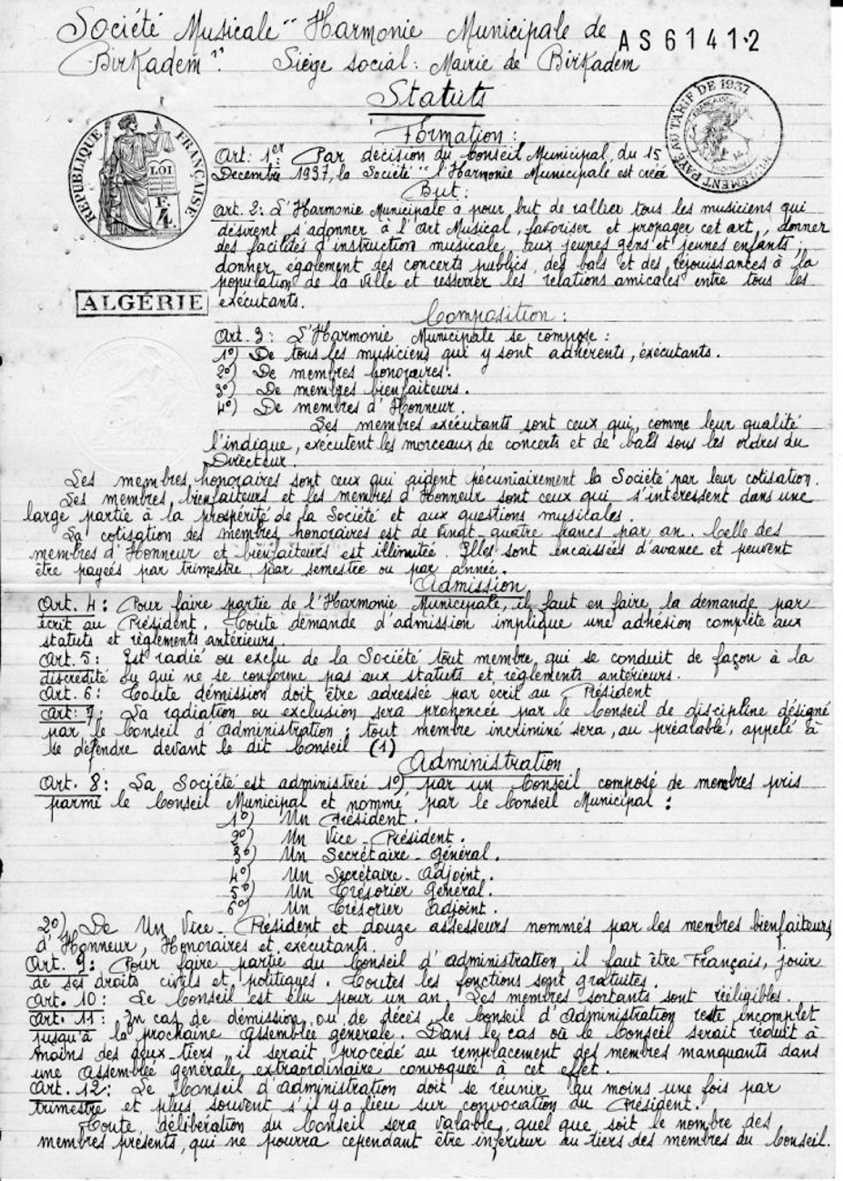 Société Musicale "Harmonie Municipale de
Birkadem". Siège social: Mairie de Birkadem
AS 6141·2
Statuts
Formation:
TIMBREMENT PAYÉ AU TARIF DE 1937
RÉPUBLIQUE FRANÇAISE
LOI
F.
4
Art: 1er: Par décision du Conseil Municipal, du 15
Décembre 1937, la Société "l'Harmonie Municipale est créé
But:
Art. 2: L'Harmonie Municipale a pour but de rallier tous les musiciens qui
désirent s'adonner à l'Art Musical, favoriser et propager cet art, donner
des facilités d'instruction musicale, aux jeunes gens et jeunes enfants;
donner également des concerts publics, des bals et des réjouissances à la
population de la ville et resserrer les relations amicales entre tous les
exécutants.
ALGÉRIE
Composition:
Art. 3: L'Harmonie Municipale se compose:
1º) De tous les musiciens qui y sont adhérents, exécutants.
2º) De membres honoraires.
3º) De membres bienfaiteurs.
4º) De membres d'Honneur.
Les membres exécutants sont ceux qui, comme leur qualité
l'indique, exécutent les morceaux de concerts et de bals sous les ordres du
Directeur.
Les membres honoraires sont ceux qui aident pécuniairement la Société par leur cotisation.
Les membres bienfaiteurs et les membres d'Honneur sont ceux qui s'intéressent dans une
large partie à la prospérité de la Société et aux questions musicales.
La cotisation des membres honoraires est de vingt-quatre francs par an. Celle des
membres d'Honneur et bienfaiteurs est illimitée. Elles sont encaissées d'avance et peuvent
être payées par trimestre, par semestre ou par année.
Admission
Art. 4: Pour faire partie de l'Harmonie Municipale, il faut en faire la demande par
écrit au Président. Toute demande d'admission implique une adhésion complète aux
statuts et règlements antérieurs.
Art. 5: Est radié ou exclu de la Société tout membre qui se conduit de façon à la
discrédité ou qui ne se conforme pas aux statuts et règlements antérieurs.
Art. 6: Toute démission doit être adressée par écrit au Président
Art: 7: La radiation ou exclusion sera prononcée par le Conseil de discipline désigné
par le Conseil d'Administration; tout membre incriminé sera, au préalable, appelé à
se défendre devant le dit Conseil (1)
Administration
Art. 8: La Société est administrée 1º) par un Conseil composé de membres pris
parmi le Conseil Municipal et nommé par le Conseil Municipal:
1º) Un Président.
2º) Un Vice-Président.
3º) Un Secrétaire-Général.
4º) Un Secrétaire-Adjoint.
5º) Un Trésorier Général.
6º) Un Trésorier Adjoint.
2º) De Un Vice-Président et douze assesseurs nommés par les membres bienfaiteurs,
d'Honneur, Honoraires et exécutants.
Art. 9: Pour faire partie du Conseil d'administration, il faut être Français, jouir
de ses droits civils et politiques. Toutes les fonctions sont gratuites.
Art. 10: Le Conseil est élu pour un an. Les membres sortants sont rééligibles.
Art. 11: En cas de démission, ou de décès, le Conseil d'Administration reste incomplet
jusqu'à la prochaine assemblée générale. Dans le cas où le Conseil serait réduit à
moins des deux-tiers il serait procédé au remplacement des membres manquants dans
une Assemblée générale extraordinaire convoquée à cet effet.
Art. 12: Le Conseil d'administration doit se réunir au moins une fois par
trimestre et plus souvent s'il y a lieu sur convocation du Président.
Toute délibération du Conseil sera valable, quel que soit le nombre des
membres présents, qui ne pourra cependant être inférieur au tiers des membres du Conseil.